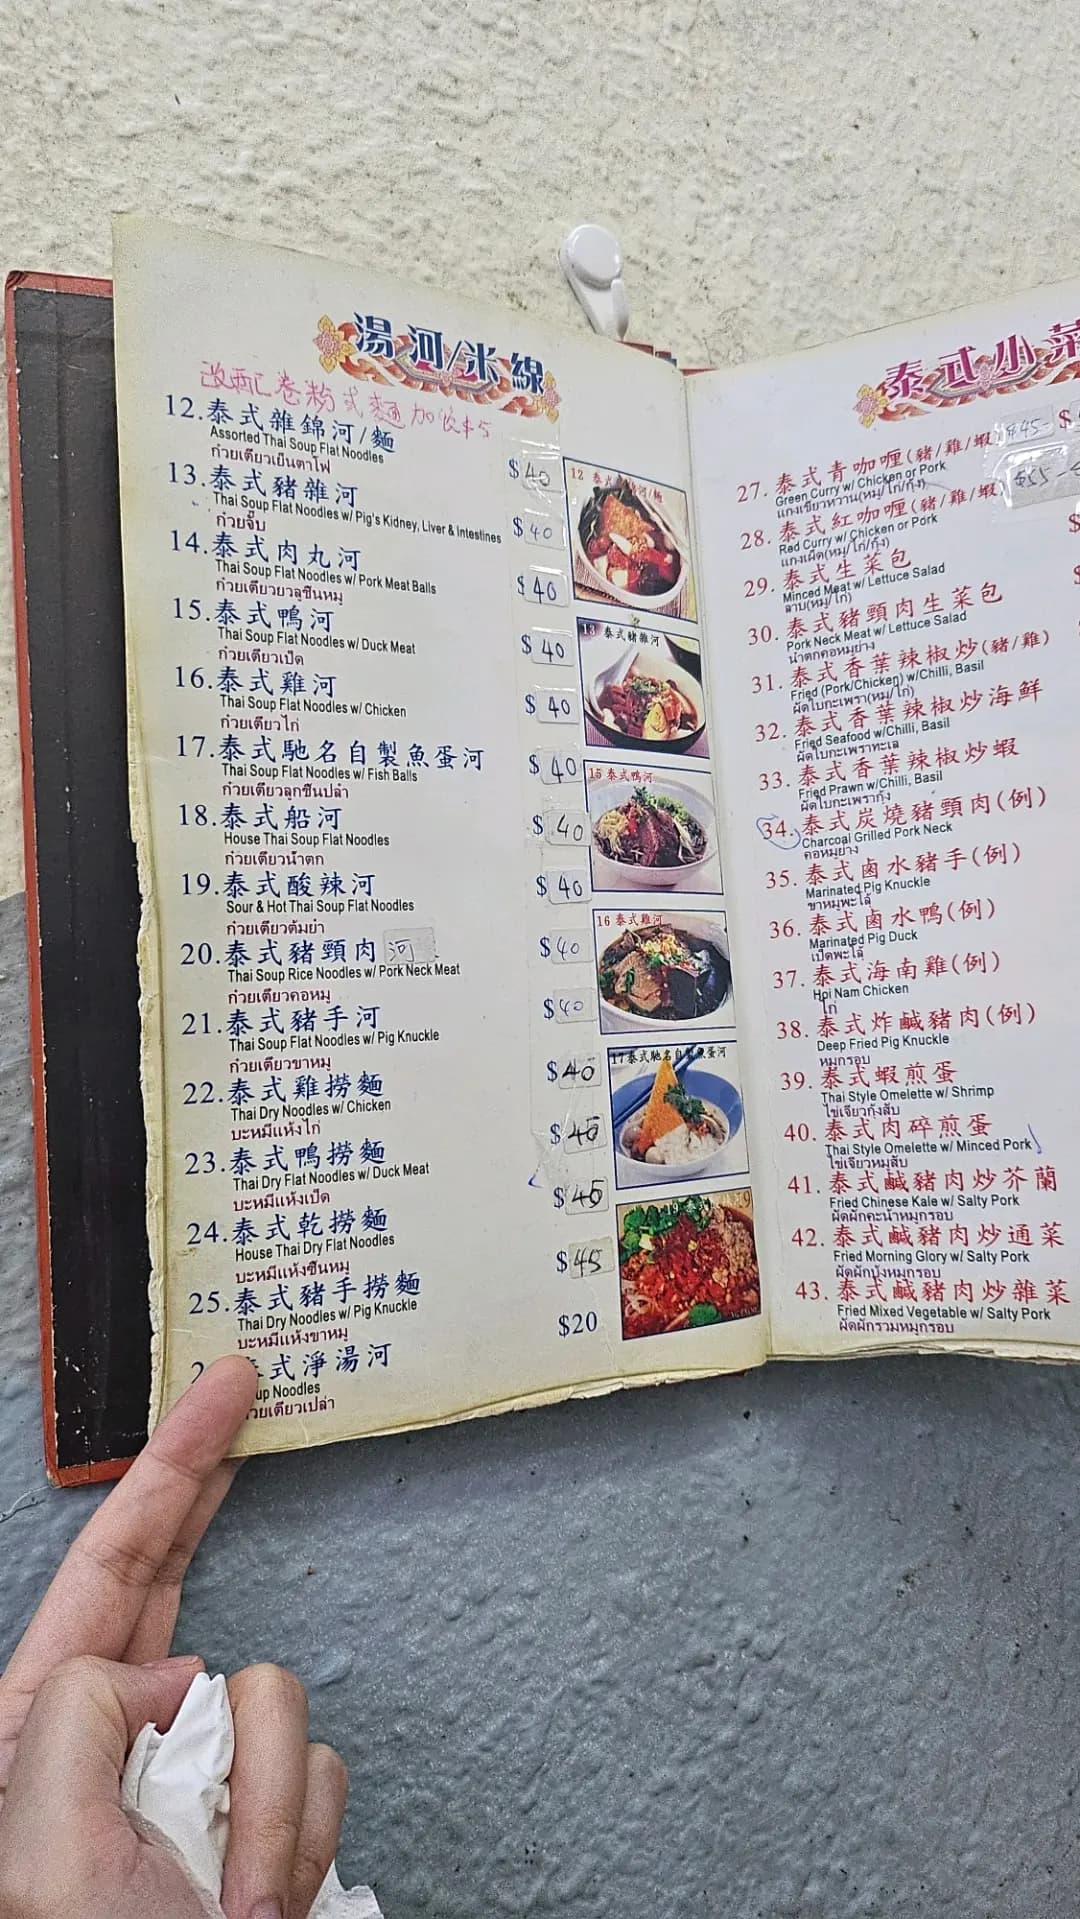 湯河/米線
改配卷粉或麵加收$5
12.泰式雜錦河/麵
Assorted Thai Soup Flat Noodles
ก๋วยเตียวเย็นตาโฟ
$40
13.泰式豬雜河
Thai Soup Flat Noodles w/ Pig's Kidney, Liver & Intestines
ก๋วยจั๊บ
$40
14.泰式肉丸河
Thai Soup Flat Noodles w/ Pork Meat Balls
$40
15.泰式鴨河
Thai Soup Flat Noodles w/ Duck Meat
ก๋วยเตียวเป็ด
$40
16.泰式雞河
Thai Soup Flat Noodles w/ Chicken
ก๋วยเตียวไก่
$40
17.泰式馳名自製魚蛋河
Thai Soup Flat Noodles w/ Fish Balls
ก๋วยเตียวลูกชีนปลา
$40
18.泰式船河
House Thai Soup Flat Noodles
ก๋วยเตียวน้ำตก
$40
19.泰式酸辣河
Sour & Hot Thai Soup Flat Noodles
ก๋วยเตียวต้มยำ
$40
20.泰式豬頸肉河
Thai Soup Rice Noodles w/ Pork Neck Meat
ก๋วยเตียวคอหมู
$40
21.泰式豬手河
Thai Soup Flat Noodles w/ Pig Knuckle
ก๋วยเตียวขาหมู
$40
22.泰式雞撈麵
Thai Dry Noodles w/ Chicken
บะหมี่แห้งไก่
$40
23.泰式鴨撈麵
Thai Dry Flat Noodles w/ Duck Meat
บะหมี่แห้งเป็ด
$40
24.泰式乾撈麵
House Thai Dry Flat Noodles
บะหมี่แห้งชีนหมู
$45
25.泰式豬手撈麵
Thai Dry Noodles w/ Pig Knuckle
บะหมี่แห้งขาหมู
$45
2
式淨湯河
oup Noodles
วยเตียวเปล่า
$20
12 泰式
河/麵
13 泰式豬雜河
15 泰式鴨河
16 泰式雞河
17泰式馳名自製魚蛋河
9
泰式小菜
27. 泰式青咖喱(豬/雞/蝦)
Green Curry w/ Chicken or Pork
แกงเขียวหวาน(หมู/ไก่/กุ้ง)
$45-
$
28. 泰式紅咖喱(豬/雞/蝦)
Red Curry w/ Chicken or Pork
แกงเผ็ด(หมู/ไก่/กุ้ง)
$55-
29. 泰式生菜包
Minced Meat w/ Lettuce Salad
ลาบ(หมู/ไก่)
30. 泰式豬頸肉生菜包
Pork Neck Meat w/ Lettuce Salad
น้ำตกคอหมูย่าง
31. 泰式香葉辣椒炒(豬/雞)
Fried (Pork/Chicken) w/Chilli, Basil
ผัดใบกะเพรา(หมู/ไก่)
32. 泰式香葉辣椒炒海鮮
Fried Seafood w/Chilli, Basil
ผัดใบกะเพราทะเล
33. 泰式香葉辣椒炒蝦
Fried Prawn w/Chilli, Basil
ผัดใบกะเพรากุ้ง
34. 泰式炭燒豬頸肉(例)
Charcoal Grilled Pork Neck
คอหมูย่าง
35. 泰式鹵水豬手(例)
Marinated Pig Knuckle
ขาหมูพะโล้
36. 泰式鹵水鴨(例)
Marinated Pig Duck
เป็ดพะโล้
37. 泰式海南雞(例)
Hoi Nam Chicken
ไก่
38. 泰式炸鹹豬肉(例)
Deep Fried Pig Knuckle
หมูกรอบ
39. 泰式蝦煎蛋
Thai Style Omelette w/ Shrimp
ไข่เจียวกุ้งสับ
40. 泰式肉碎煎蛋
Thai Style Omelette w/ Minced Pork
ไข่เจียวหมูสับ
41. 泰式鹹豬肉炒芥蘭
Fried Chinese Kale w/ Salty Pork
ผัดผักคะน้าหมูกรอบ
42. 泰式鹹豬肉炒通菜
Fried Morning Glory w/ Salty Pork
ผัดผักบุ้งหมูกรอบ
43. 泰式鹹豬肉炒雜菜
Fried Mixed Vegetable w/ Salty Pork
ผัดผักรวมหมูกรอบ